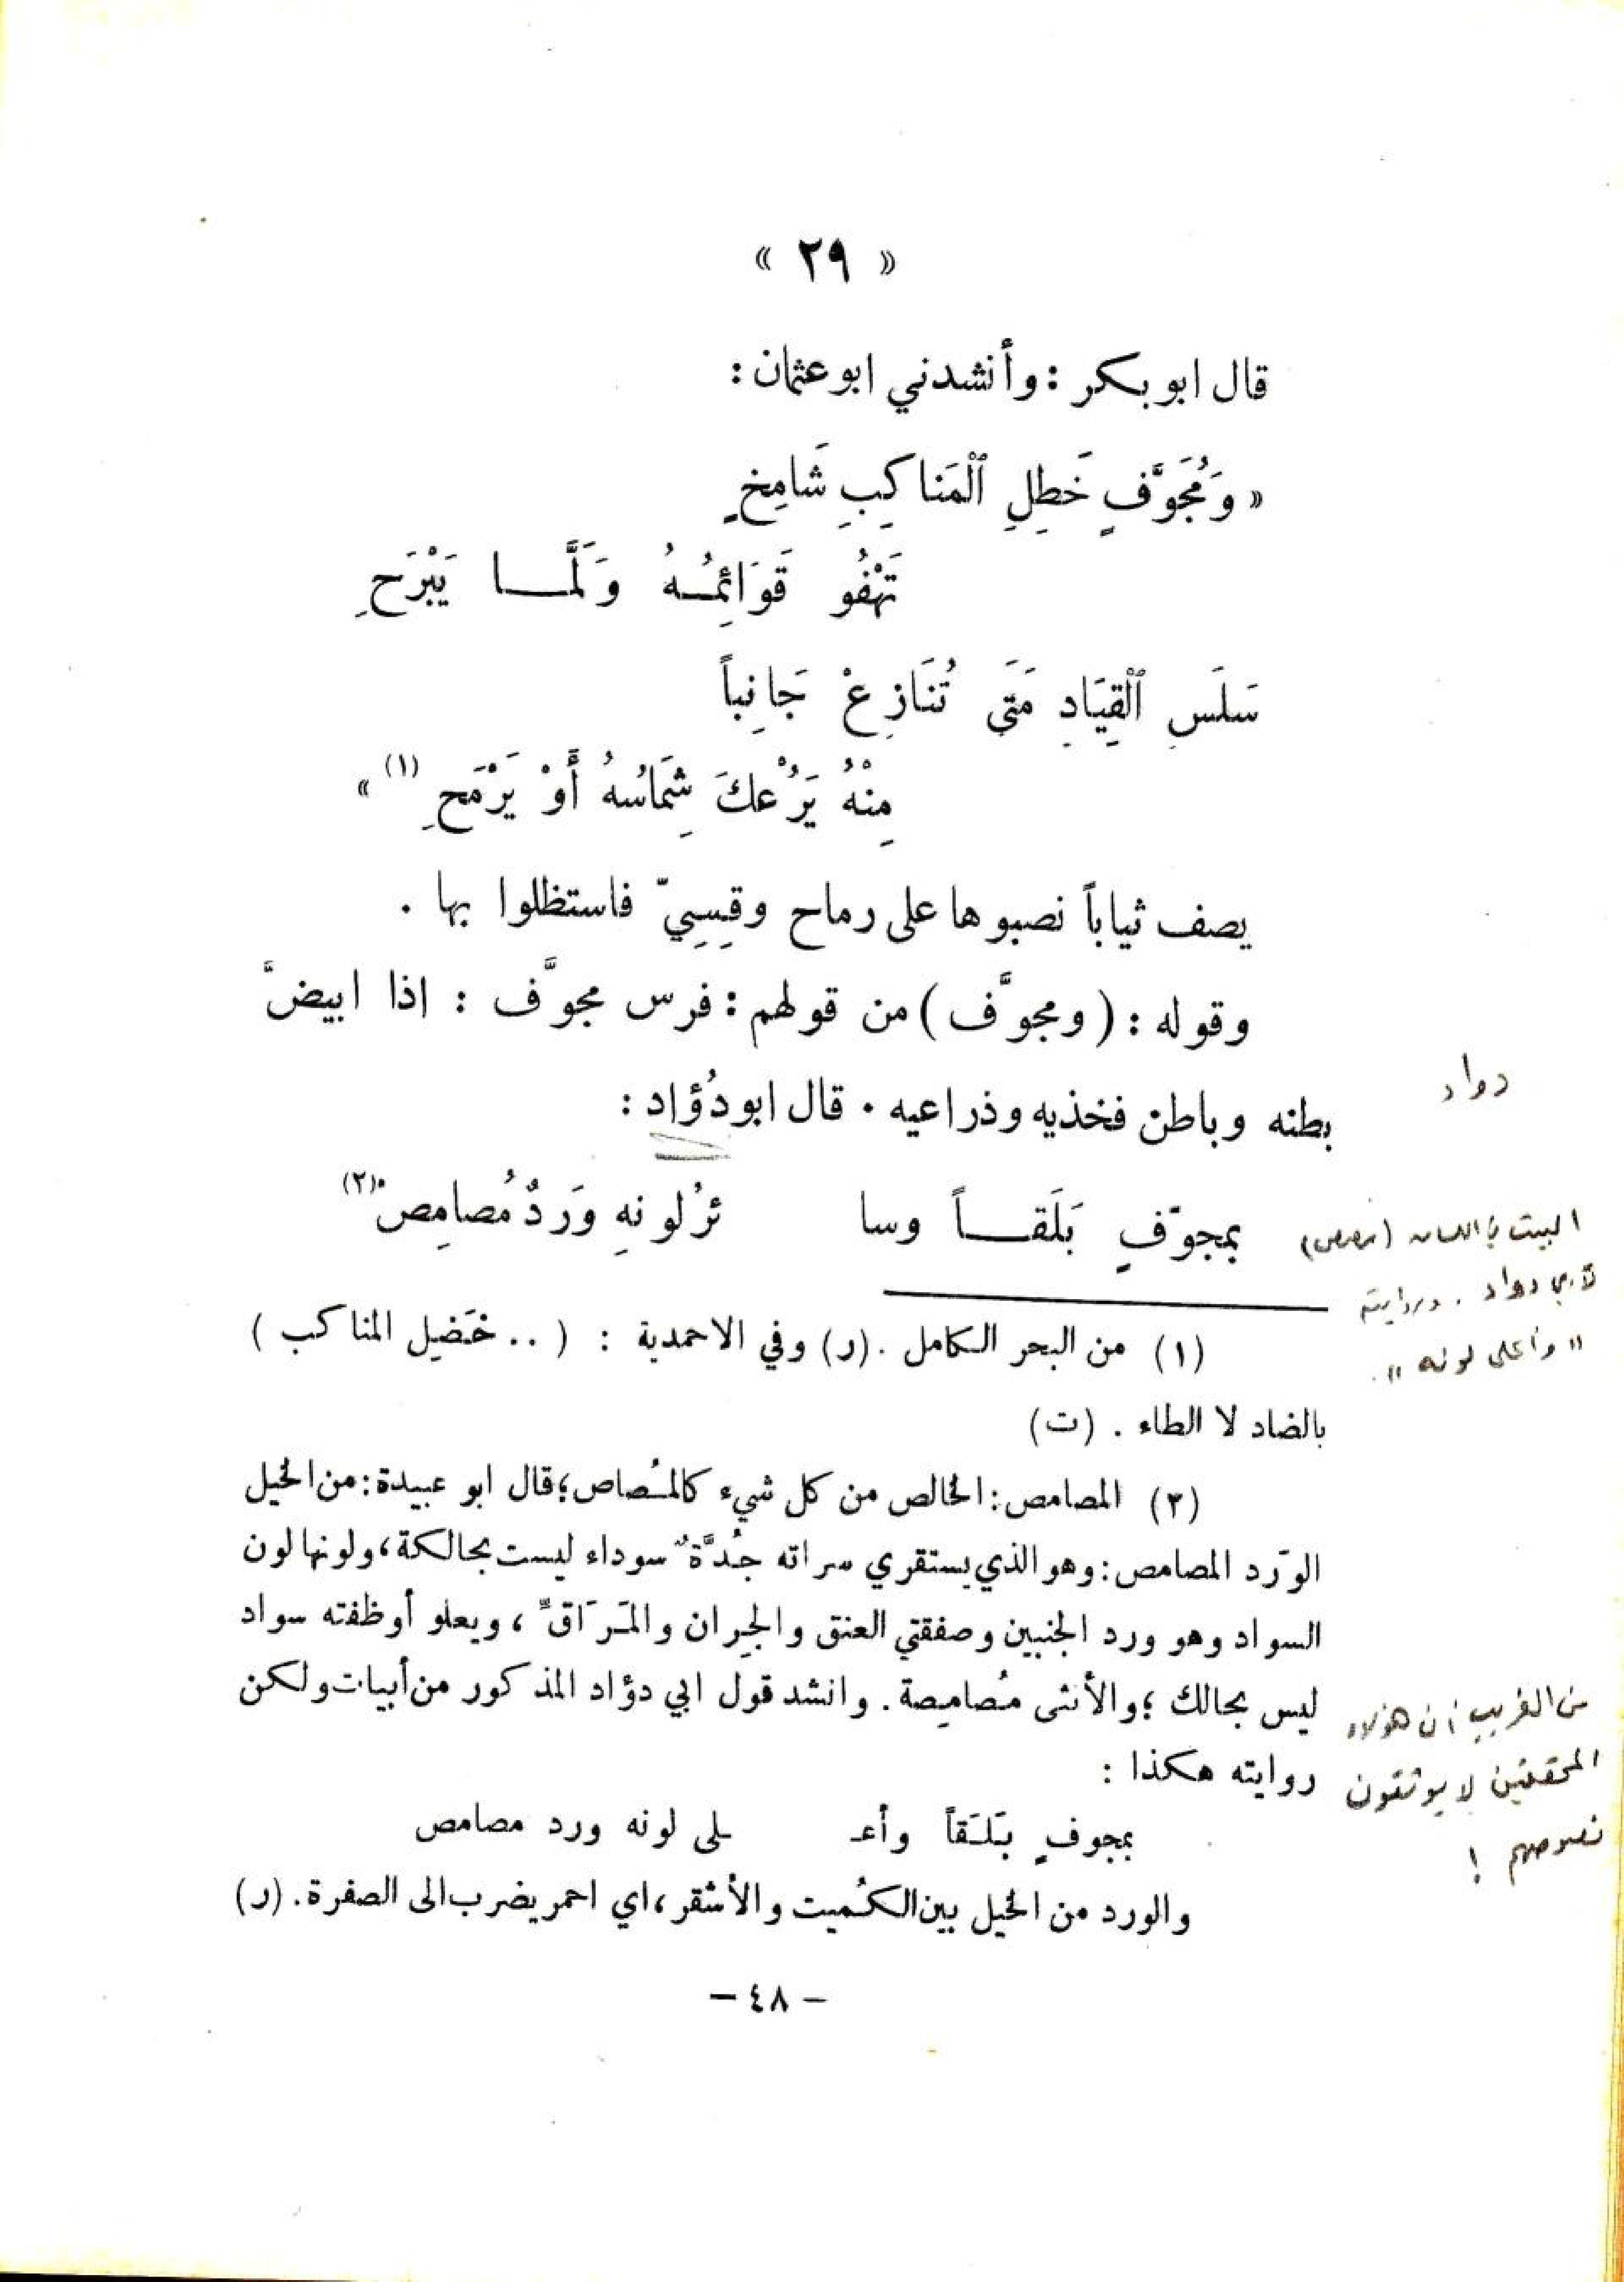 « ٢٩ »
قال ابو بكر : وأنشدني ابو عثمان :
« وَمُجَوَّفٍ خَطِلِ ٱلْمَناكِبِ شَامِخٍ
تَهْفُو قَوَائِمُـهُ وَلَمَّـــا يَبْرَحِ
سَلَسِ ٱلْقِيَادِ مَتَى تُنَازِعْ جَانِباً
مِنْهُ يَرُعْكَ شِمَاسُهُ أَوْ يَرْمَحِ (١) »
يصف ثياباً نصبوها على رماح وقِسِيّ فاستظلوا بها .
وقوله : ( ومجوَّف ) من قولهم : فرس مجوَّف : اذا ابيضَّ
بطنه وباطن فخذيه وذراعيه . قال ابو دُؤاد :
دواد
بمجوّفٍ بَلَقـــاً وسا ئرُ لونهِ وَردٌ مُصامِصْ (٢)
البيت في اللسان (مصص)
لأبي دواد . وروايته
" وأعلى لونه " .
(١) من البحر الكامل . (ر) وفي الاحمدية : ( . . خَضيل المناكب )
بالضاد لا الطاء . (ت)
(٢) المصامص : الخالص من كل شيء كالمُصاص ؛ قال ابو عبيدة : من الخيل
الوَرد المصامص : وهو الذي يستقري سراته جُدَّةٌ سوداء ليست بحالكة ، ولونها لون
السواد وهو ورد الجنبين وصفقتي العنق والجِران والمَرَاقّ ، ويعلو أوظفته سواد
ليس بحالك ؛ والأنثى مُصامِصة . وانشد قول ابي دؤاد المذكور من أبيات ولكن
روايته هكذا :
من الغريب أن هؤلاء
المحققين لا يوثقون
نصوصهم !
بمجوفٍ بَلَقاً وأعـ ـلى لونه ورد مصامص
والورد من الخيل بين الكُميت والأشقر ، اي احمر يضرب الى الصفرة . (ر)
– ٤٨ –